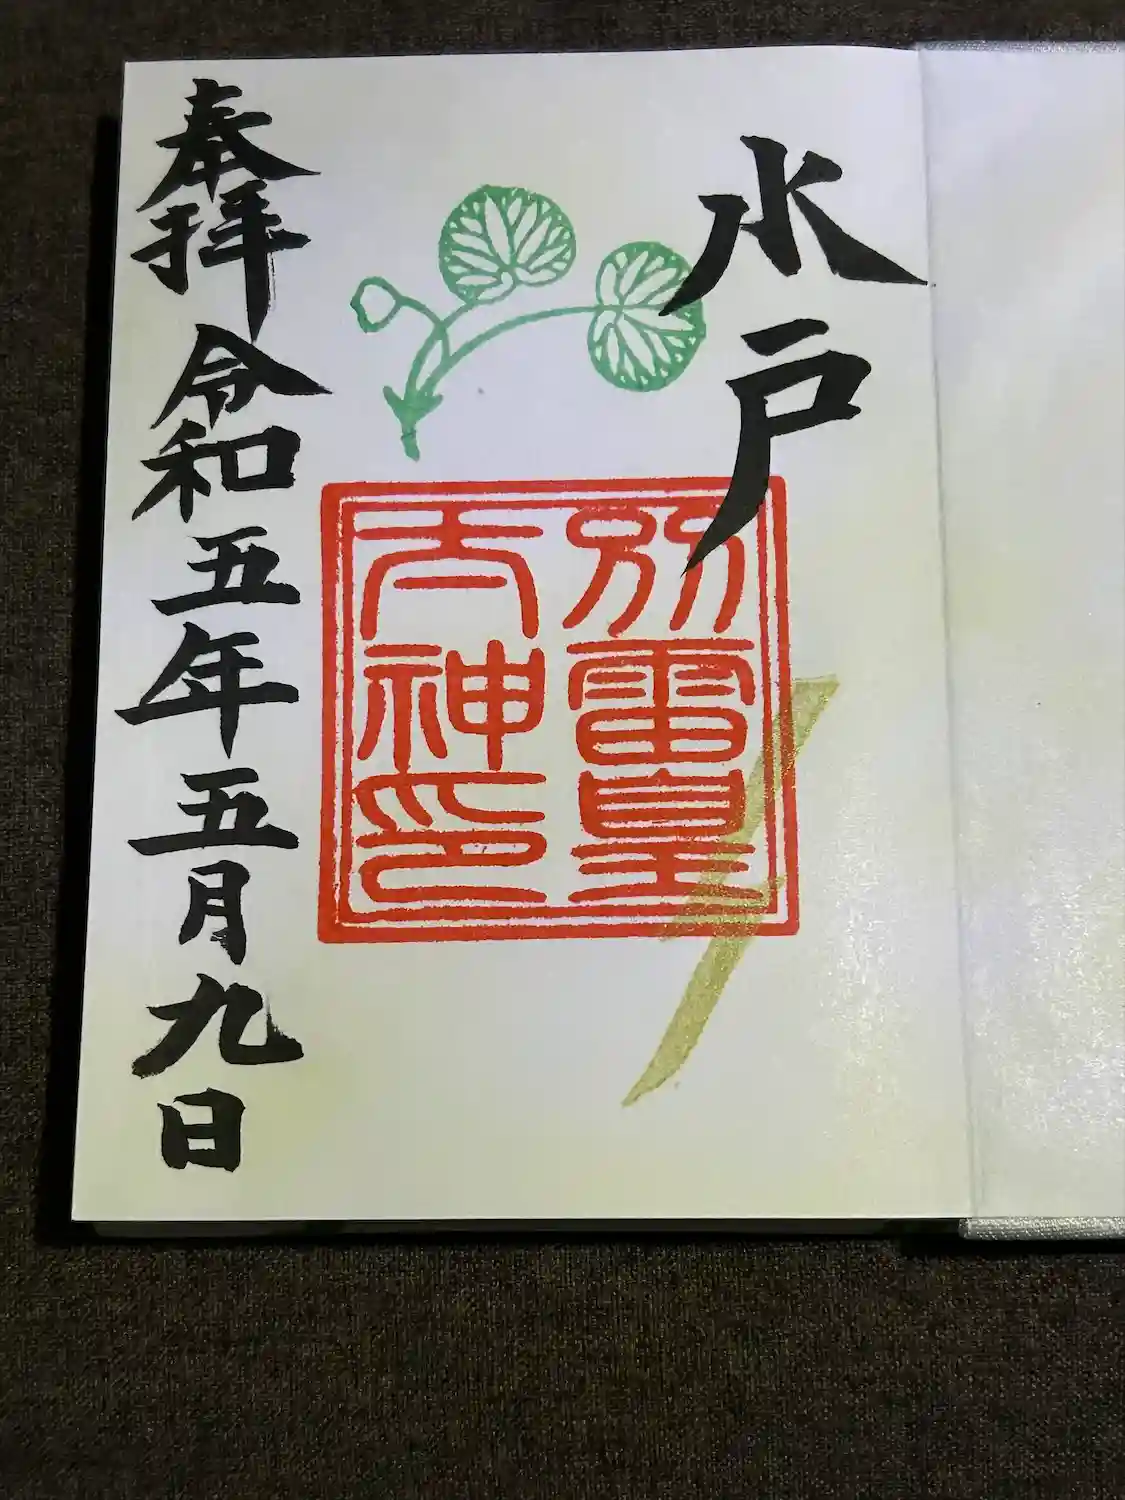 水戸
別雷皇
大神印
奉拝 令和五年五月九日